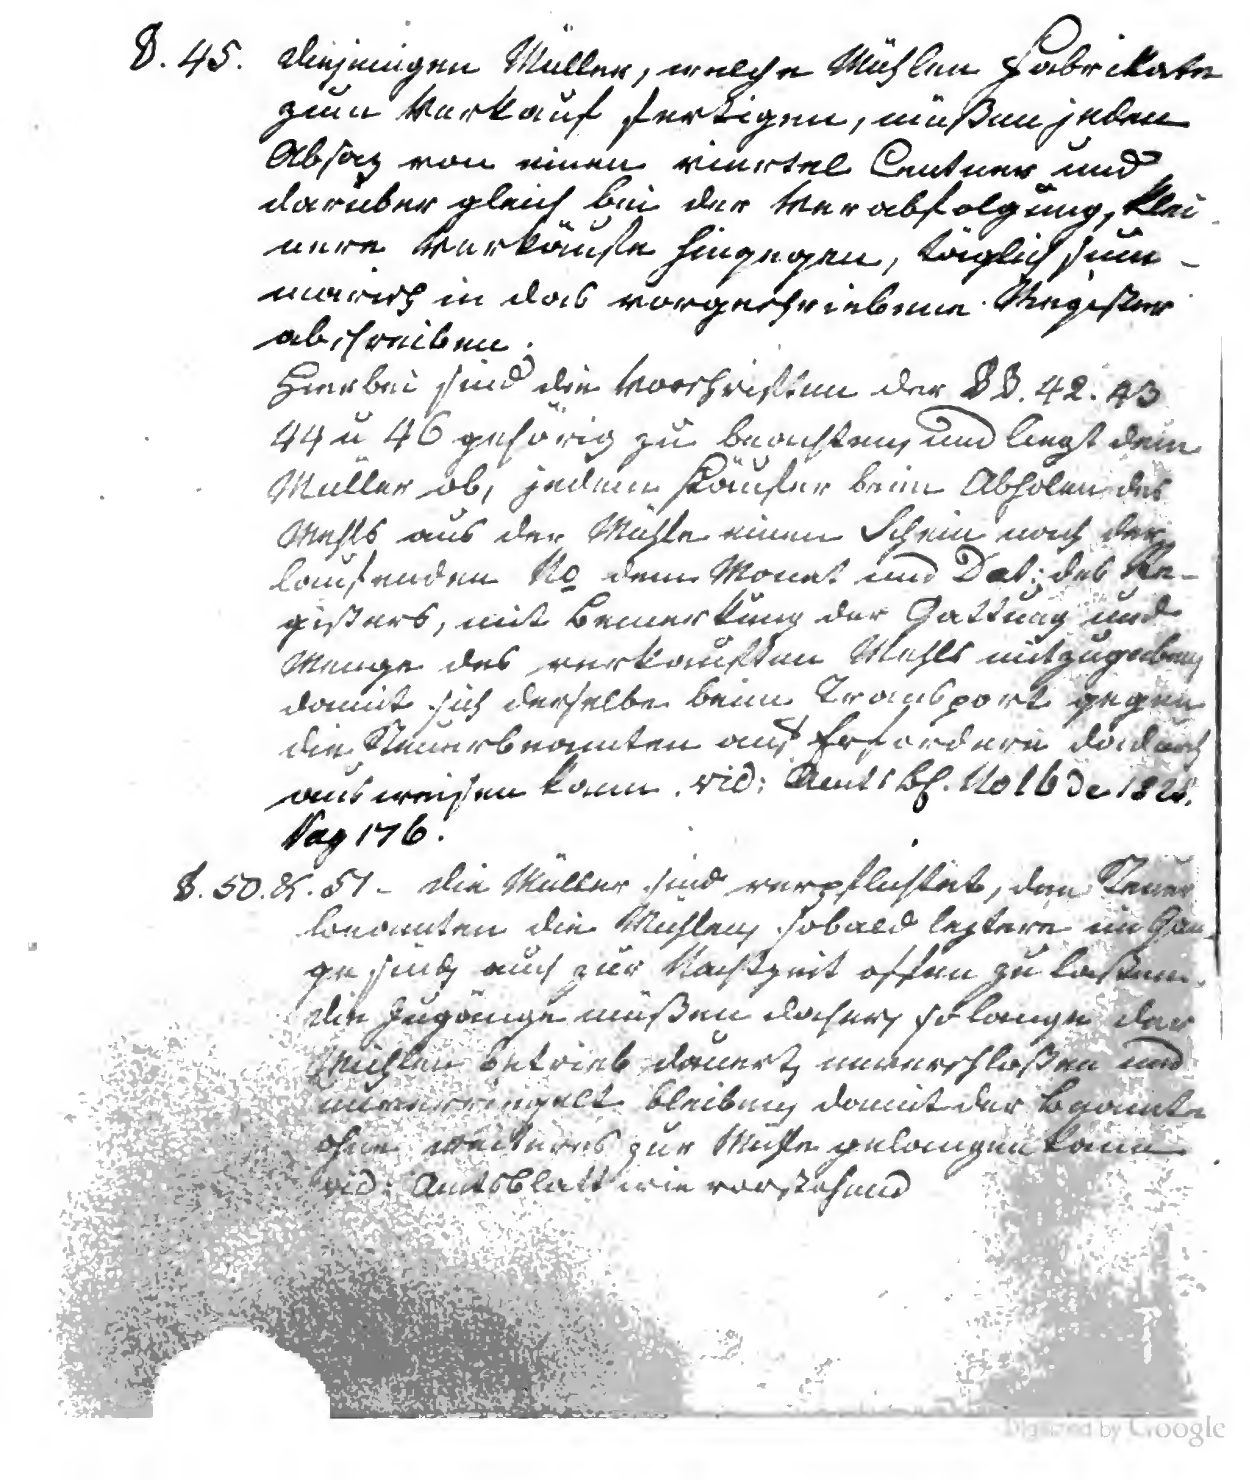 §. 45. Diejenigen Müller, welche Mühlen Fabrikate
zum Verkauf fertigen, müßen jeden
Absaz von einen viertel Centner und
darüber gleich bei der Verabfolgung, klei
nere Verkäufe hingegen, täglich sum-
marisch in das vorgeschriebene Register
abschreiben.
Hierbei sind die Vorschriften der §§. 42. 43
44 u 46 gehörig zu beachten, und liegt dem
Müller ob, jedem Käufer beim Abholen des
Mehls aus der Mühle einen Schein nach der
laufenden No dem Monat und Dat: des Re-
gisters, mit Bemerkung der Gattung und
Menge des verkauften Mehls mitzugeben,
damit sich derselbe beim Transport gegen
die Steuerbeamten auf Erfordern dadurch
ausweisen kann. vid: Amtsbl. No 16 de 1828.
Pag 176.
§. 50. & 51 - Die Müller sind verpflichtet, den Steuer
beamten die Mühlen, sobald leztere im Gan-
ge sind, auch zur Nachtzeit offen zu laßen.
Die Zugänge müßen daher, so lange der
Mühlen betrieb dauert, unverschloßen und
unverriegelt bleiben, damit der Beamte
ohne weiteres zur Mühle gelangen kann
vid: Amtsblatt wie vorstehend
Digitized by Google